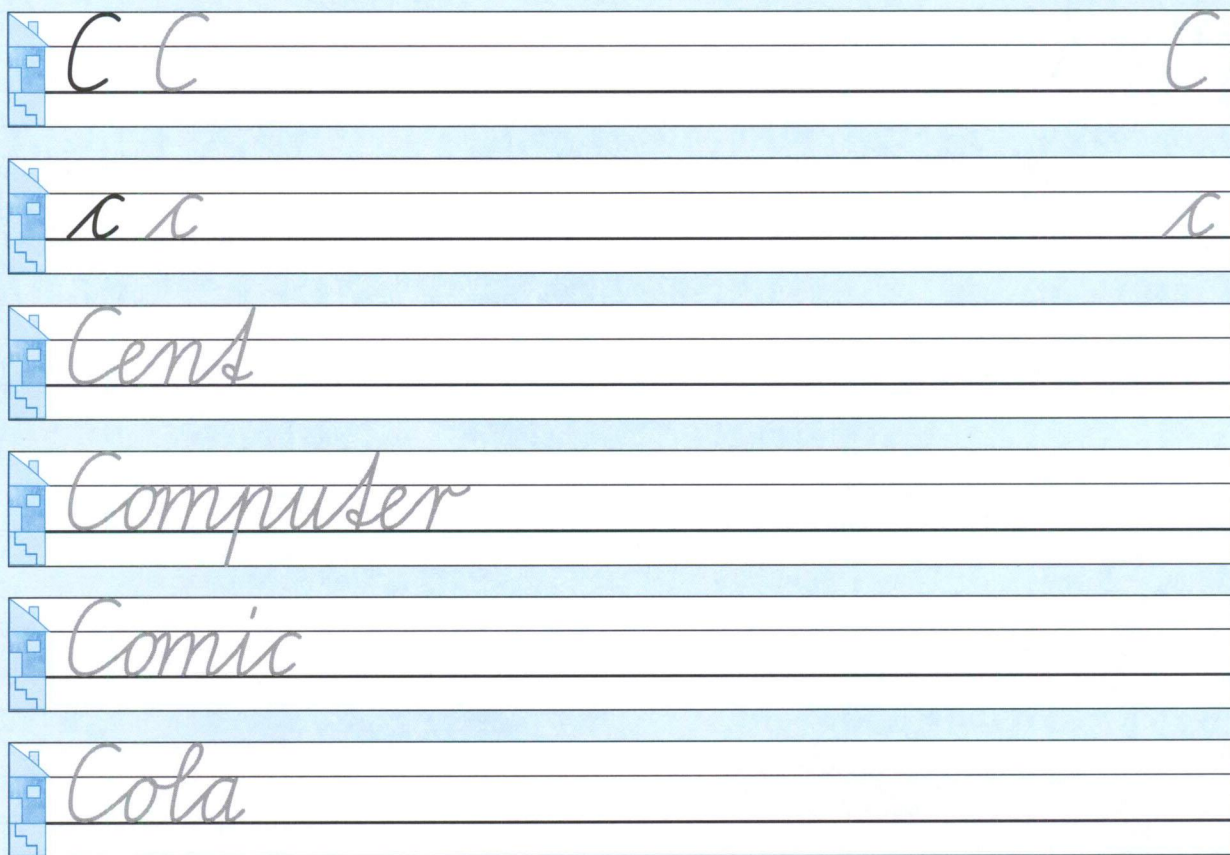 C C C
c c c
Cent
Computer
Comic
Cola